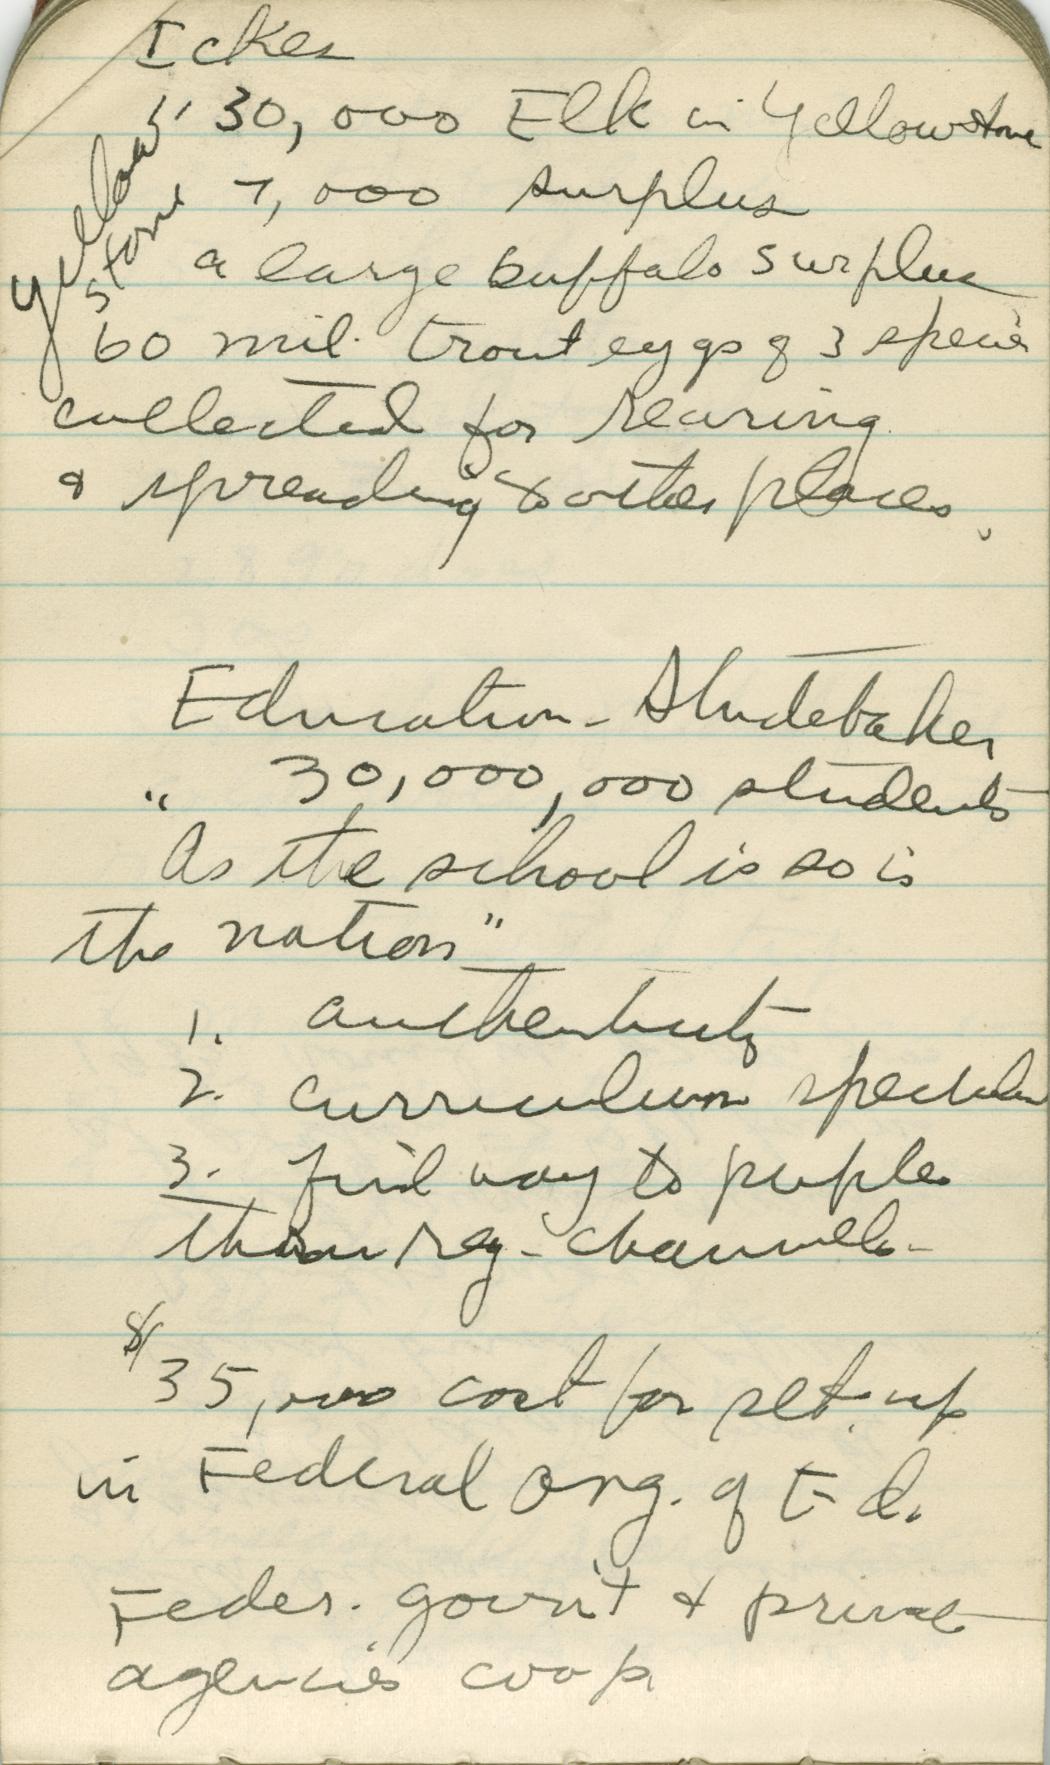 Ickes
" 30,000 Elk in Yellowstone
Yellow
stone
7,000 surplus
a large buffalo surplus
60 mil. trout eggs of 3 species
collected for rearing
& spreading to other places.
Education - Studebaker
" 30,000,000 students
As the school is so is
the nation"
1. authenticity
2. curriculum
3. find way to
thru reg. channels -
$35,000 cost for set-up
in Federal Org. of Ed.
Feder. gov't & private
agencies coop